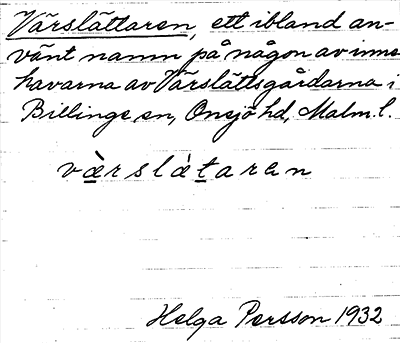 Värslättaren, ett ibland an-
vänt namn på någon av inne
havarna av Värslättsgårdarna i
Billinge sn, Onsjö hd, Malm. l.
vàrslàtaren
Helga Persson 1932